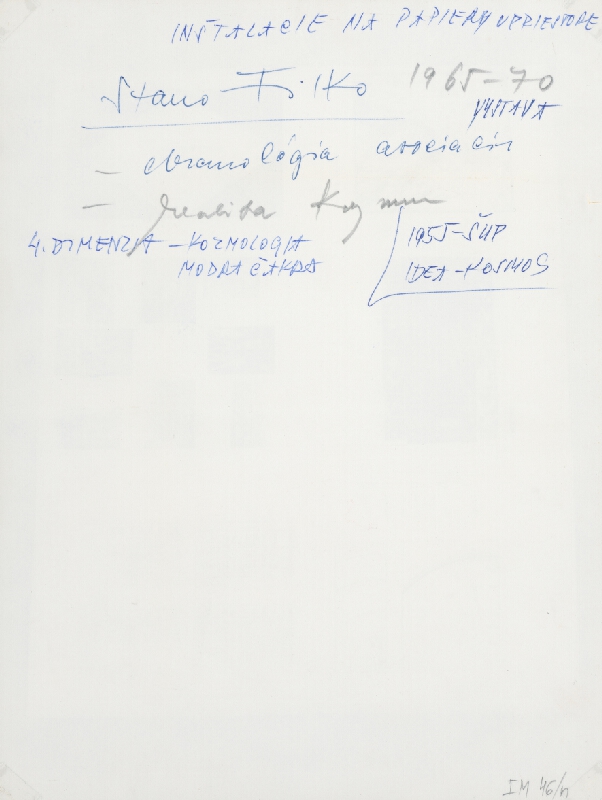 INŠTALACIE NA PAPIERY V PRIESTORE
Stano Filko 1965-70
VÝSTAVA
- chronológia asociácií
- realita Kozmu
4. DIMENZIA - KOZMOLOGIA
MODRA ČAKRA
1955-ŠUP
IDEA-KOSMOS
IM 46/n